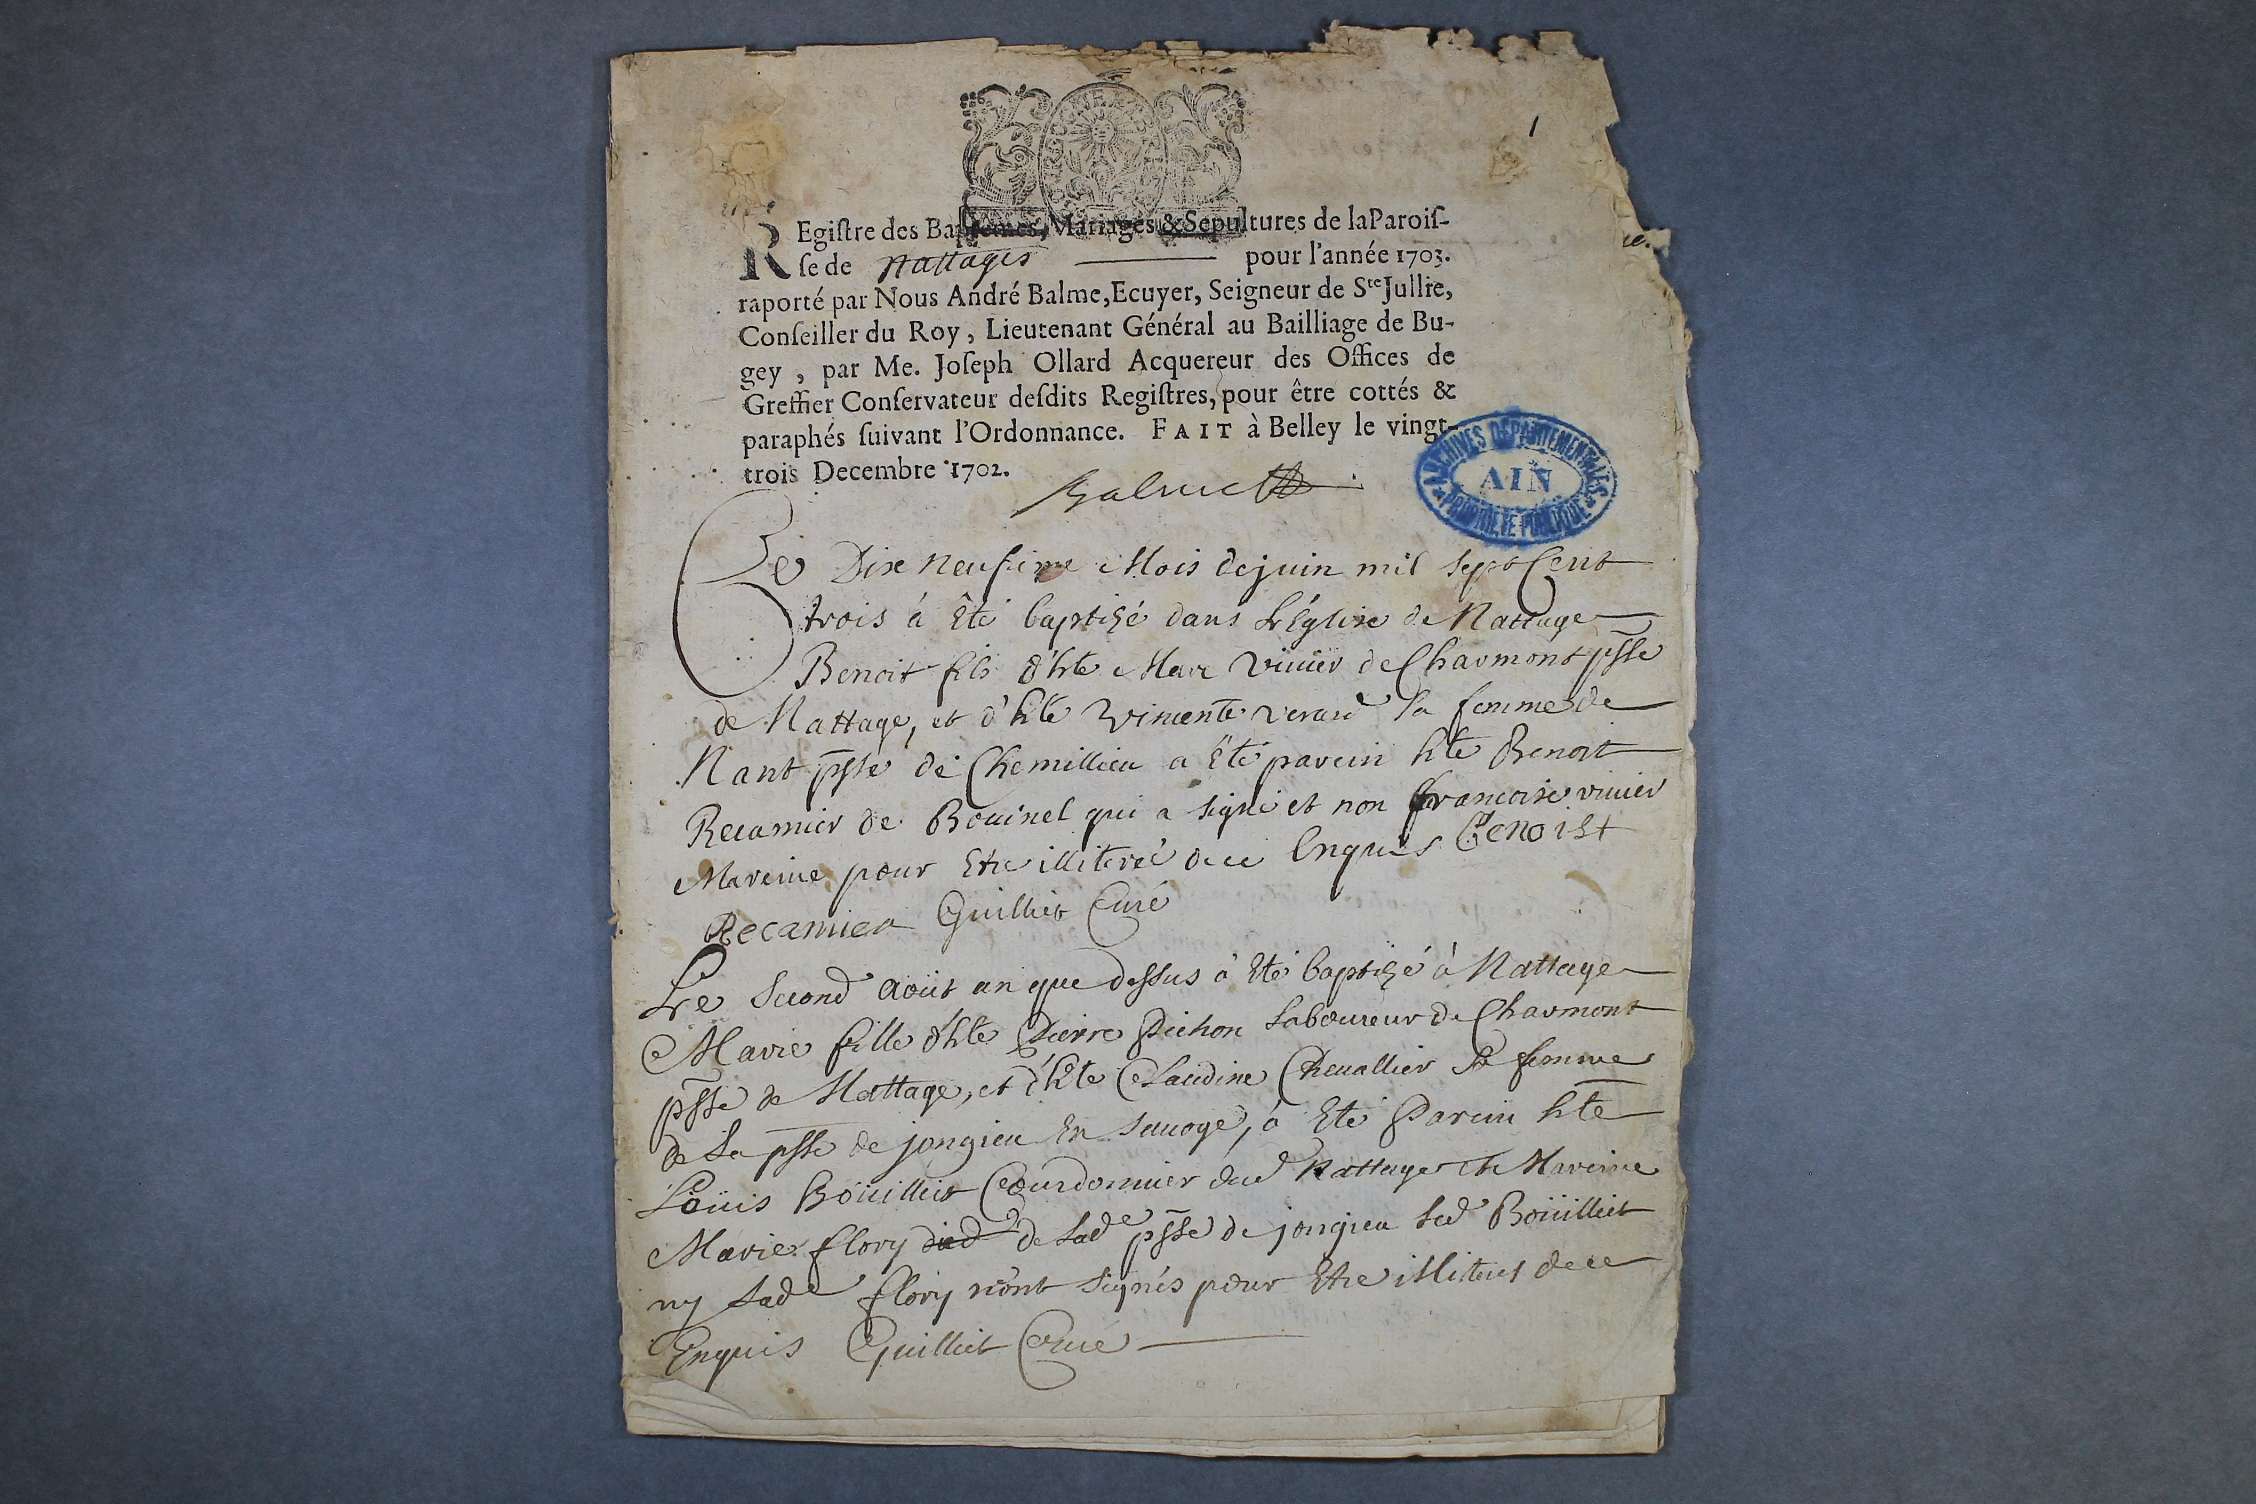 1
REgiſtre des Baptemes, Mariages & Sepultures de la Paroiſ-
ſe de Nattages pour l'année 1703.
raporté par Nous André Balme, Ecuyer, Seigneur de Ste Jullie,
Conſeiller du Roy, Lieutenant Général au Bailliage de Bu-
gey, par Me. Joſeph Ollard Acquereur des Offices de
Greffier Conſervateur deſdits Regiſtres, pour être cottés &
paraphés ſuivant l'Ordonnance. FAIT à Belley le vingt-
trois Decembre 1702.
Balme
ARCHIVES DEPARTEMENTALES
AIN
PROPRIETE PUBLIQUE
Le Dix Neufieme Mois de juin mil sept Cent
trois á Eté baptizé dans L'Eglise de Nattage
Benoit fils d'hte Marc viuier de Charmont psse
de Nattage, et d'hte vincente verard sa femme de
Nant psse de Chemillieu a Eté parein hte Benoit
Recamier de Bouinel qui a signé et non francoise viuier
Mareine pour Etre illiteré de ce Enquis Benoist
Recamier Guilliet Curé
Le second août an que dessus á Eté baptizé á Nattage
Marie fille d'hte Pierre Pichon Laboureur de Charmont
psse de Nattage, et d'hte Claudine Cheuallier sa femme
de La psse de jongieu En sauoye, á Eté Parein hte
Loüis Boüilliet Courdonnier dud Nattage et Mareine
Marie flory dud de Lade psse de jongieu Led Boüilliet
ny Lade flory n'ont signés pour Etre illiterés de ce
Enquis Guilliet Curé